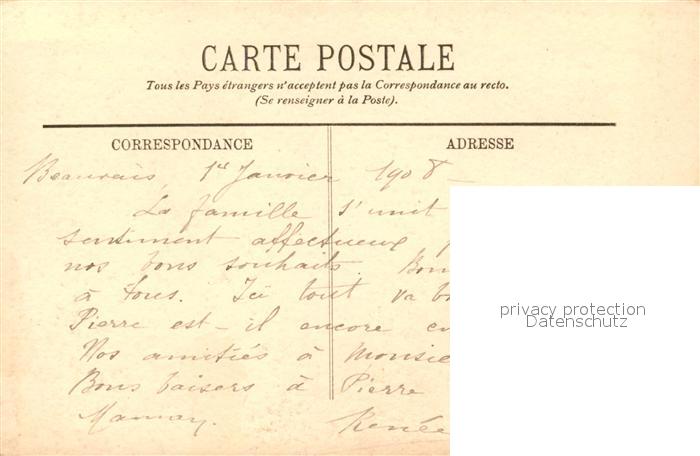 CARTE POSTALE
Tous les Pays étrangers n'acceptent pas la Correspondance au recto.
(Se renseigner à la Poste).
CORRESPONDANCE ADRESSE
Beauvais, 1er Janvier 1908
La famille s'unit
sentiment affectueux
nos bons souhaits. Bon
à tous. Ici tout va b
Pierre est-il encore en
Nos amitiés à Monsie
Bons baisers à Pierre
Renée
privacy protection
Datenschutz